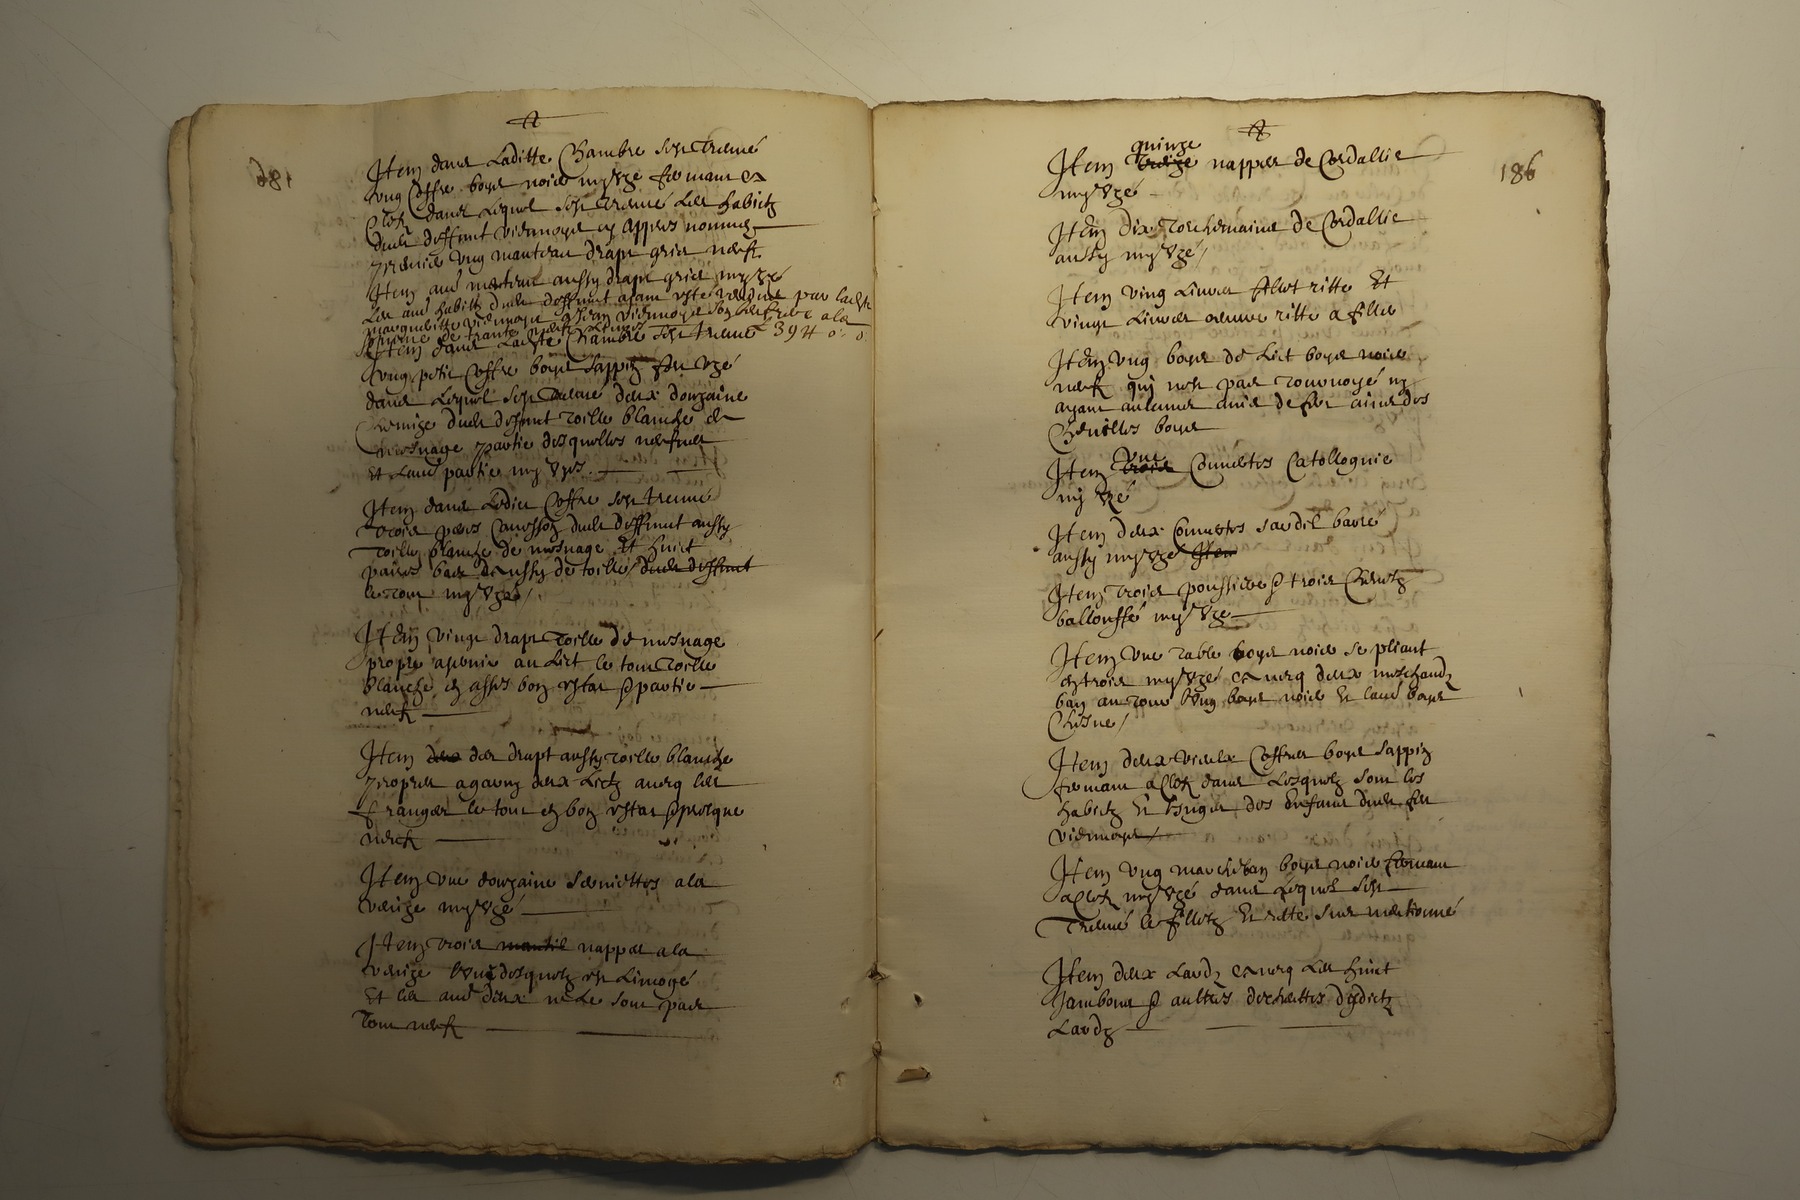 Item dans Laditte Chambre s'est treuvé
ung Coffre boys noier my uzé fermant a
Clefz dans lequel s'est treuvé Les habictz
dudt deffunt Viennoys cy appres nommez
premier ung manteau drapt gris neufz
Item aud manteau aussy drapt gris my uzé
Les aud habitz dudt deffunt ayant esté par ladte
somme de trante 394 0. 0
Item dans Ladte Chambre s'est treuvé
ung petit Coffre boys Sappin fort uzé
dans Lequel s'est treuvé deux douzaine
Chemize dudt deffunt toille blanche de
mesnage partie desquelles neufves
Et Laud partie my uzés
Item dans Ledict Coffre s'est treuvé
trois paires Caussons dudt deffunt aussy
toille blanche de mesnage Et huict
paires bas aussy de toille dudt deffunt
le tout my uzés
Item vingt drapt toille de mesnage
propre a au Lict le tout toille
blanche en asses bon estat & partie
neufz
Item deux des drapt aussy toille blanche
propres a garny deux Lictz avecq les
franges le tout en bon estat & presque
neufz
Item une douzaine serviettes a la
Venize my uzé
Item trois mantil nappes a la
Venize l'une desquelz est Limogé
Et les aud deux ne le sont pas
tout neufz
186
quinze
Item treize nappes de Cordallie
my uzé
Item dix torchemains de Cordallie
aussy my uzé
Item ving Livres fillet ritte Et
vingt Livres œuvre ritte a filler
Item ung boys de Lict boys noier
neufz qui n'est pas tournoyé ny
ayant aulcunes avis de fer ains des
Chevilles boys
une
Item trois Couvertes Catalloguie
my uzé
Item deux Couvertes sardil barré
aussy my uzé Item
Item trois poussiere & trois Chevetz
ballouffe my uzé
Item une table boys noier se pliant
en trois my uzé avecq deux meschandz
banc au tour l'ung boys noier Et laud boys
Chesne
Item deux vieulx Coffres boys Sappin
fermant a Clefz dans Lesquelz sont les
habictz Et linges des Enfans dudt feu
Viennoys
Item ung marchebanc boys noier fermant
a Clefz my uzé dans Lequel s'est
treuvé le filletz Et ritte sus mentionné
Item deux Lardz avecq Les huict
Jambons & aultres desdictz
Lardz